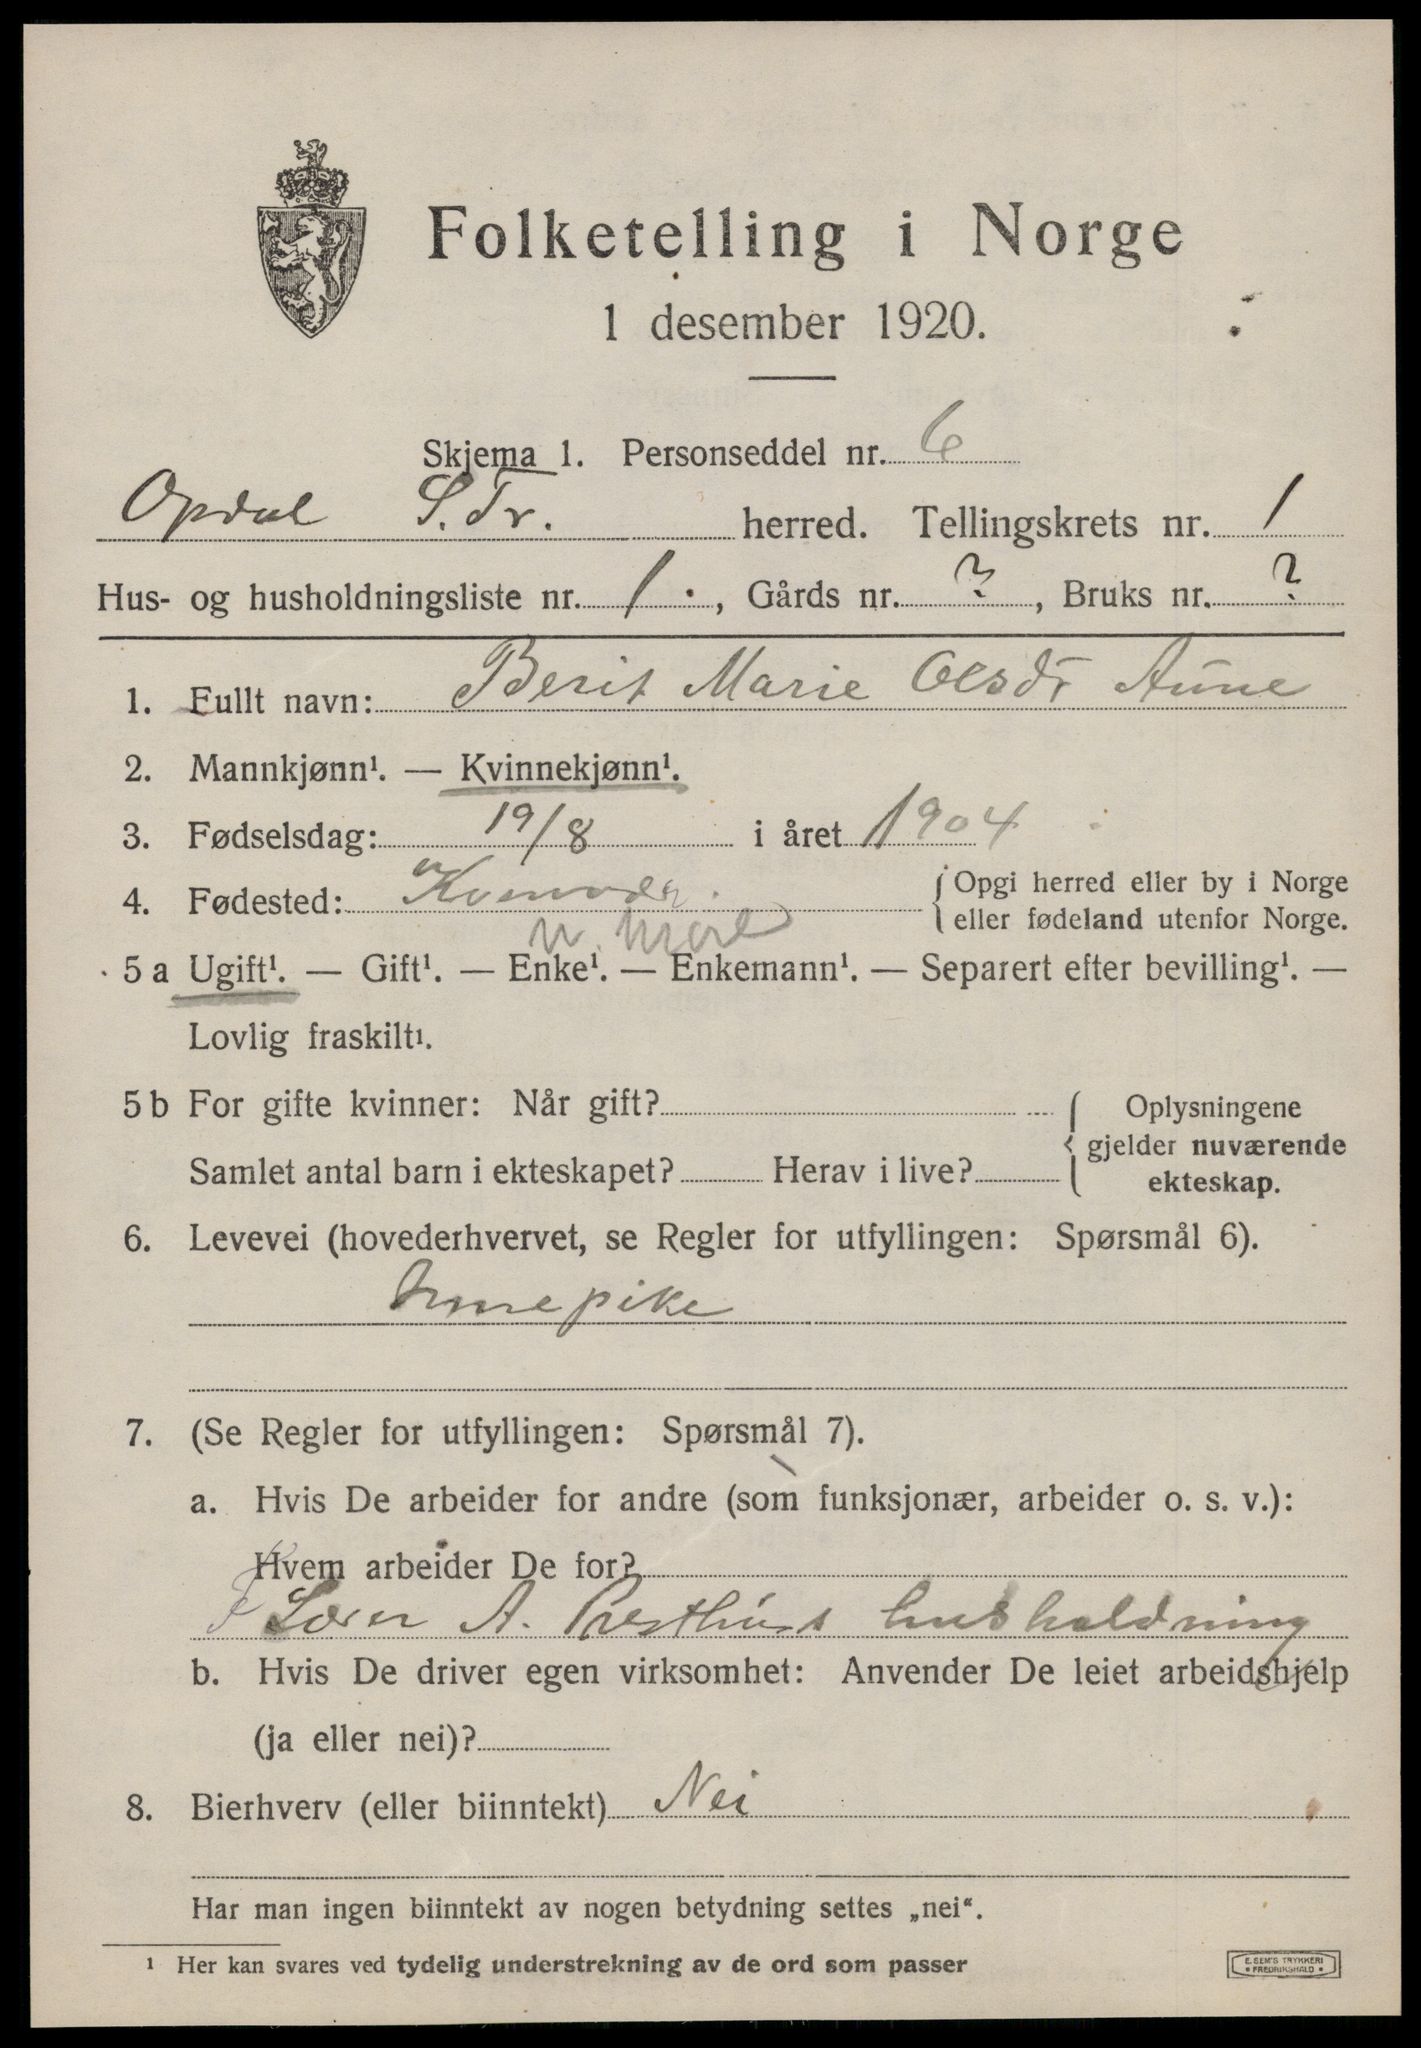 Folketelling i Norge
1 desember 1920.
Skjema 1. Personseddel nr. 6
Opdal S. Tr. herred. Tellingskrets nr. 1
Hus- og husholdningsliste nr. 1., Gårds nr. ?, Bruks nr. ?
1. Fullt navn: Berit Marie Olsdr Aune
2. Mannkjønn¹. — Kvinnekjønn¹.
3. Fødselsdag: 19/8 i året 1904
4. Fødested: { Opgi herred eller by i Norge
eller fødeland utenfor Norge.
N. Møre
5 a Ugift¹. — Gift¹. — Enke¹. — Enkemann¹. — Separert efter bevilling¹. —
Lovlig fraskilt¹.
5 b For gifte kvinner: Når gift? { Oplysningene
gjelder nuværende
Samlet antal barn i ekteskapet? Herav i live?
ekteskap.
6. Levevei (hovederhvervet, se Regler for utfyllingen: Spørsmål 6).
Innepike
7. (Se Regler for utfyllingen: Spørsmål 7).
a. Hvis De arbeider for andre (som funksjonær, arbeider o. s. v.):
Hvem arbeider De for?
Lærer A. Presthus husholdning
b. Hvis De driver egen virksomhet: Anvender De leiet arbeidshjelp
(ja eller nei)?
8. Bierhverv (eller biinntekt) Nei
Har man ingen biinntekt av nogen betydning settes „nei“.
¹ Her kan svares ved tydelig understrekning av de ord som passer
E. SEM'S TRYKKERI
• FREDRIKSHALD •